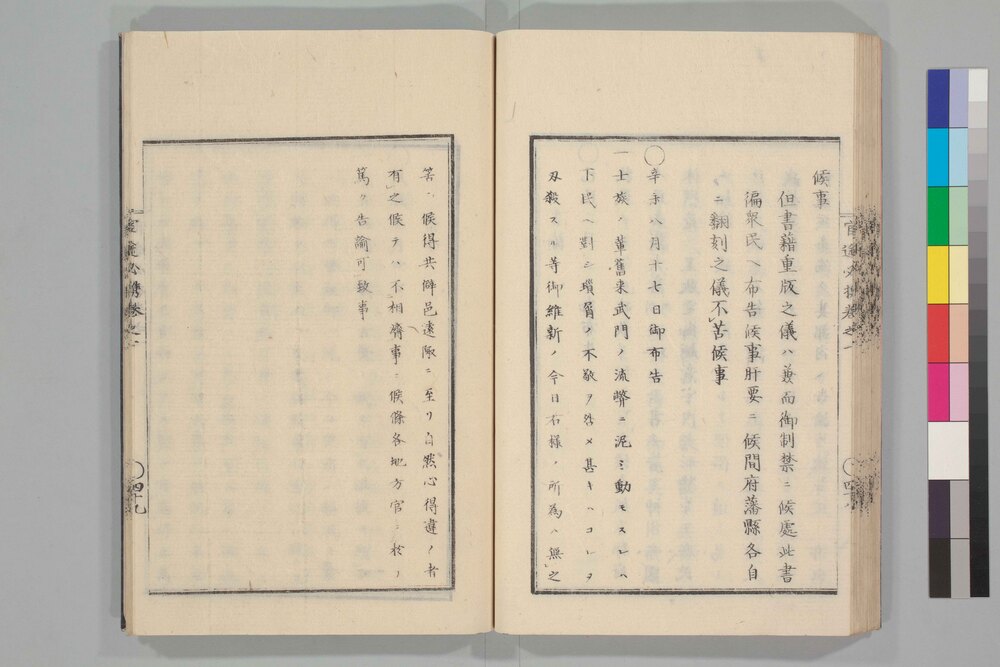 候事
但書藉重版之儀ハ兼而御制禁ニ候處此書
徧衆民ヘ布告候事肝要ニ候間府藩縣各自
ニ翻刻之儀不苦候事
〇
辛未八月十七日御布告
一士族ノ輩舊来武門ノ流弊ニ泥ミ動モスレハ
下民ヘ對シ瑣屑ノ不敬ヲ咎メ甚キハコレヲ
刃殺スル等御維新ノ今日右様ノ所為ハ無之
筈ニ候得共僻邑遠陬ニ至リ自然心得違ノ者
有之候テハ不相濟事ニ候條各地方官ニ於ノ
篤ク告諭可致事
官途必携巻之一
〇四十九